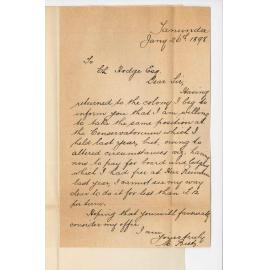 Tanunda
Jany 26th 1898
To
Ch Hodge Esq.
Dear Sir,
Having
returned to the colony I beg to
inform you that I am willing
to take the same position at
the Conservatorium which I
held last year, but, owing to
altered circumstances viz. having
now to pay for board and
which I had free at Herr
last year, I cannot see my way
clear to do it for less than
per term.
Hoping that you will favourably
consider my offer,
I am,
Yours truly,